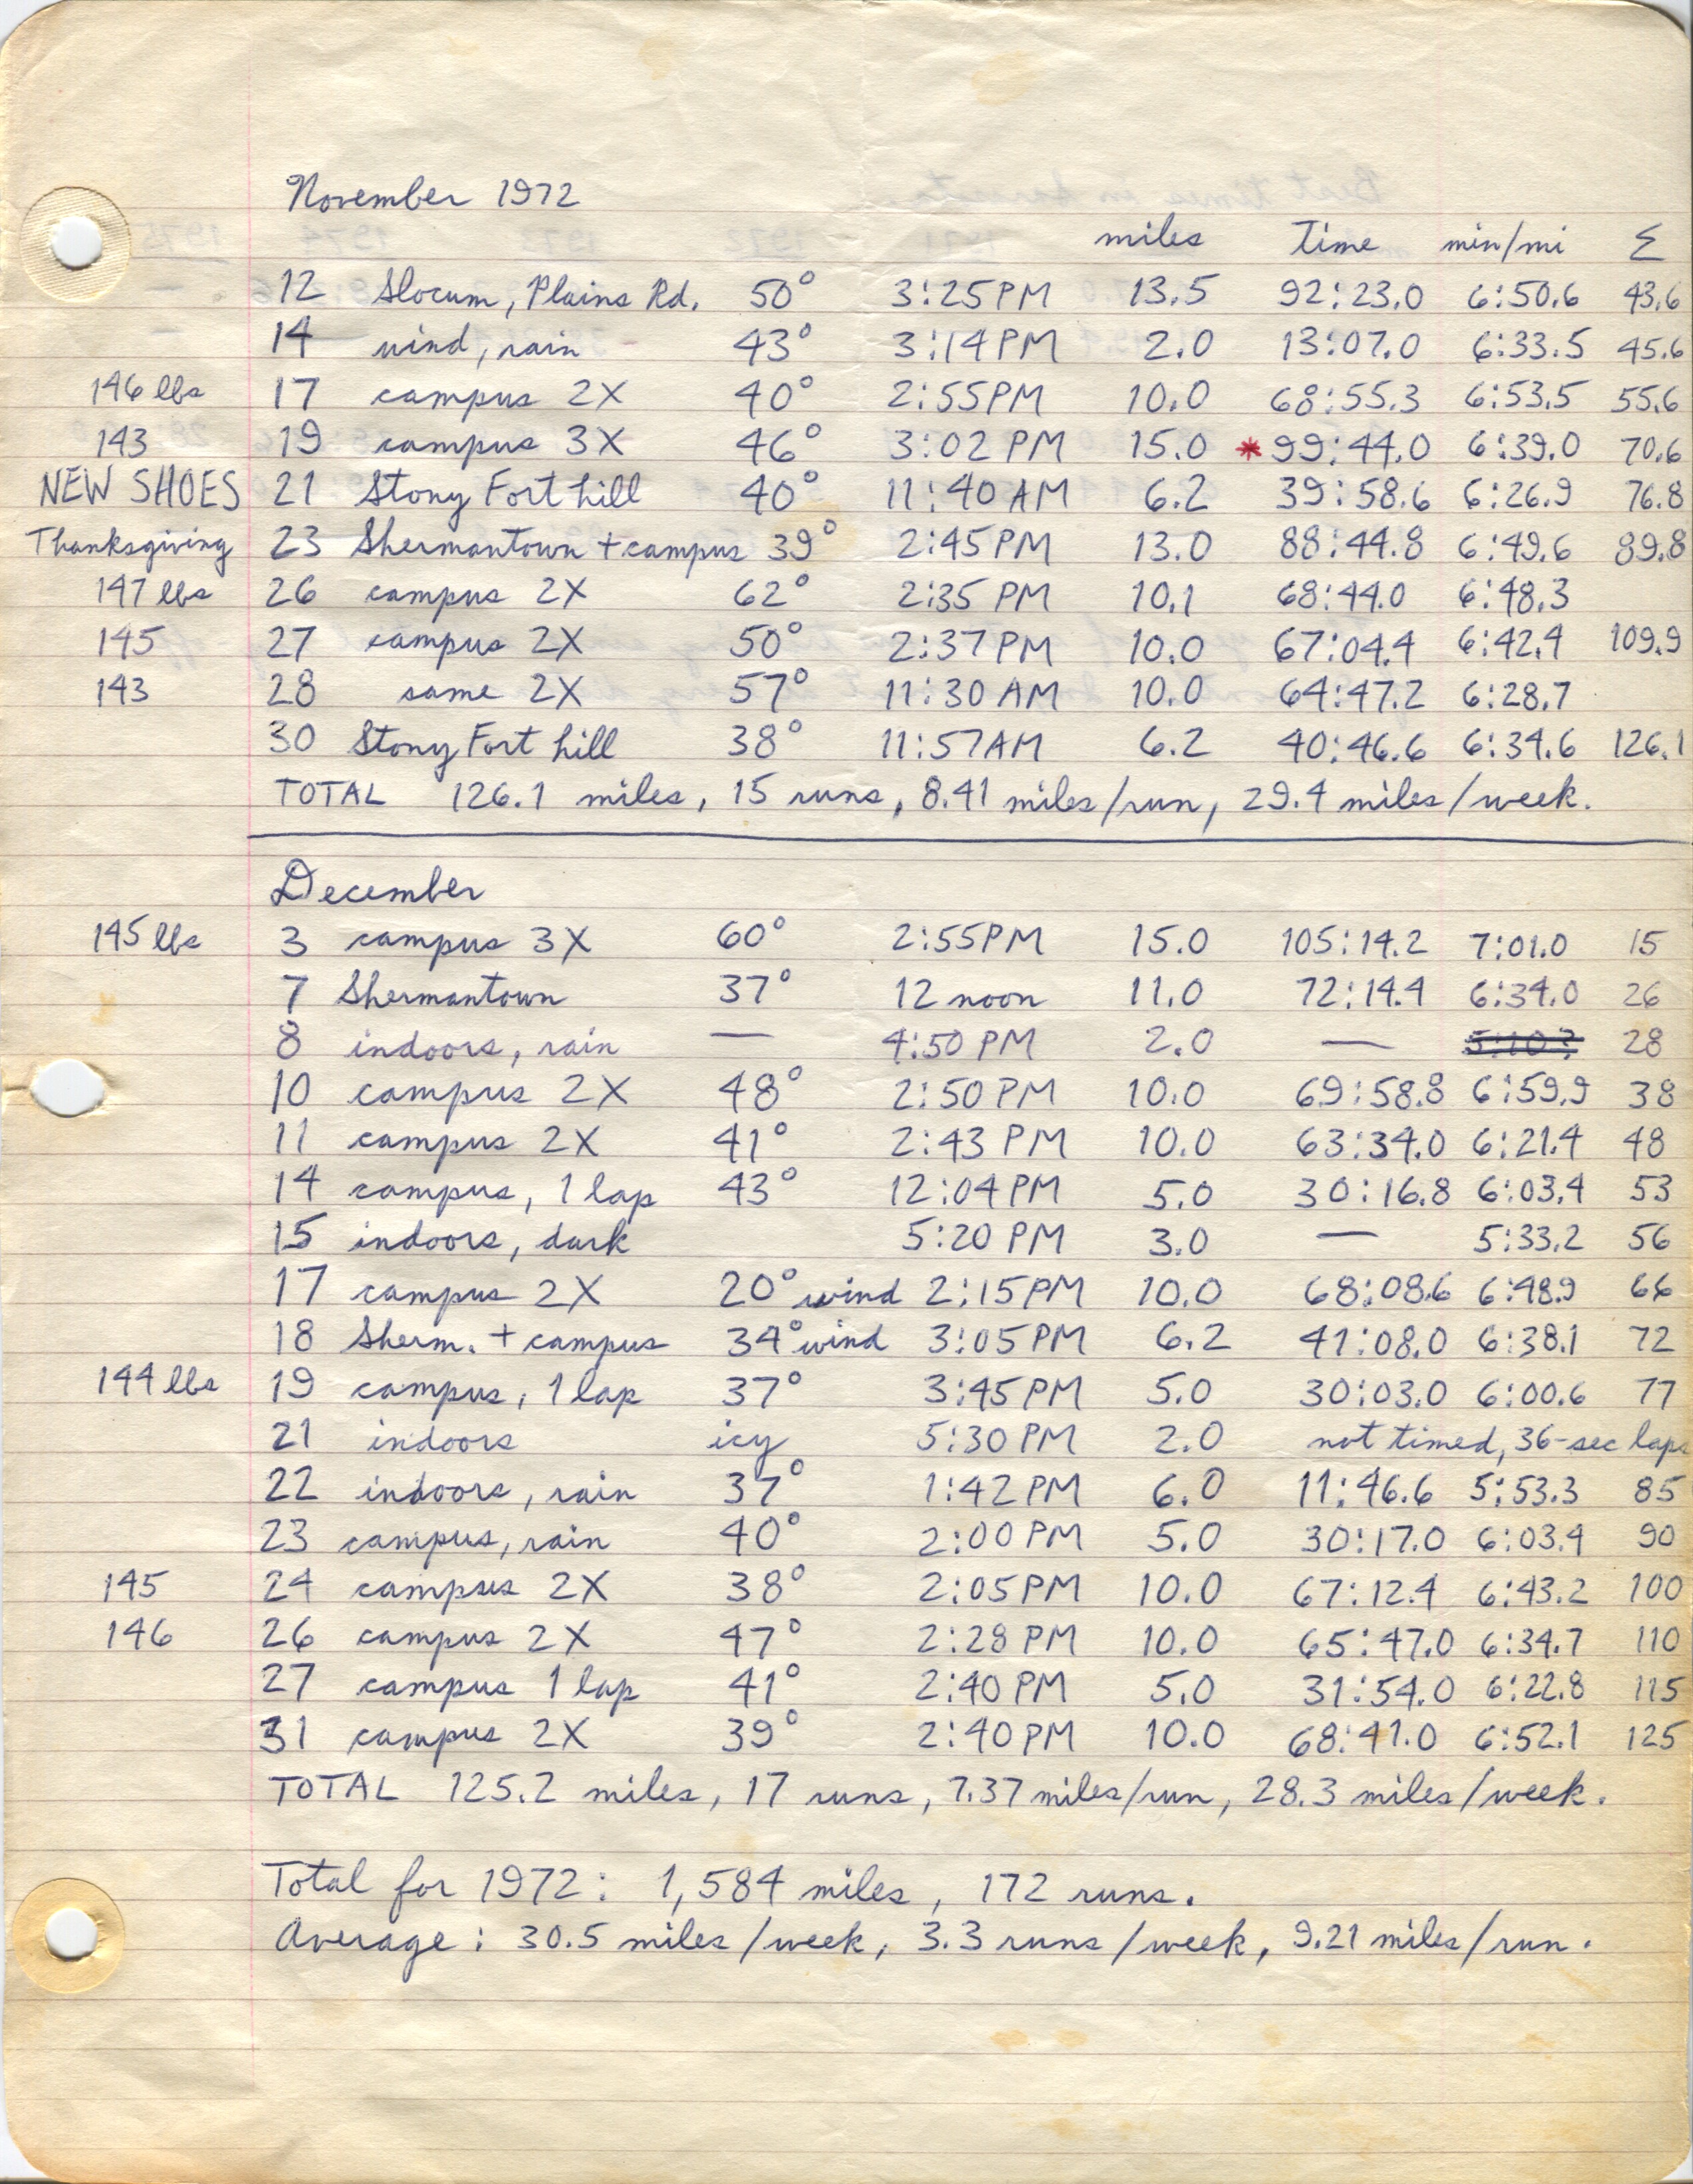 November 1972
miles time min/mi Σ
12 Slocum, Plains Rd. 50° 3:25PM 13.5 92:23.0 6:50.6 43.6
14 wind, rain 43° 3:14PM 2.0 13:07.0 6:33.5 45.6
146 lbs 17 campus 2X 40° 2:55PM 10.0 68:55.3 6:53.5 55.6
143 19 campus 3X 46° 3:02 PM 15.0 *99:44.0 6:39.0 70.6
NEW SHOES 21 Stony Fort hill 40° 11:40 AM 6.2 39:58.6 6:26.9 76.8
Thanksgiving 23 Shermantown + campus 39° 2:45PM 13.0 88:44.8 6:49.6 89.8
147 lbs 26 campus 2X 62° 2:35 PM 10.1 68:44.0 6:48.3
145 27 campus 2X 50° 2:37PM 10.0 67:04.4 6:42.4 109.9
143 28 same 2X 57° 11:30 AM 10.0 64:47.2 6:28.7
30 Stony Fort hill 38° 11:57AM 6.2 40:46.6 6:34.6 126.1
TOTAL 126.1 miles, 15 runs, 8.41 miles/run, 29.4 miles/week.
December
145 lbs 3 campus 3X 60° 2:55PM 15.0 105:14.2 7:01.0 15
7 Shermantown 37° 12 noon 11.0 72:14.4 6:34.0 26
8 indoors, rain — 4:50 PM 2.0 — 28
10 campus 2X 48° 2:50 PM 10.0 69:58.8 6:59.9 38
11 campus 2X 41° 2:43 PM 10.0 63:34.0 6:21.4 48
14 campus, 1 lap 43° 12:04PM 5.0 30:16.8 6:03.4 53
15 indoors, dark 5:20 PM 3.0 — 5:33.2 56
17 campus 2X 20° wind 2:15PM 10.0 68:08.6 6:48.9 66
18 Sherm. + campus 34° wind 3:05PM 6.2 41:08.0 6:38.1 72
144 lbs 19 campus, 1 lap 37° 3:45PM 5.0 30:03.0 6:00.6 77
21 indoors icy 5:30 PM 2.0 not timed, 36-sec laps
22 indoors, rain 37° 1:42PM 6.0 11:46.6 5:53.3 85
23 campus, rain 40° 2:00PM 5.0 30:17.0 6:03.4 90
145 24 campus 2X 38° 2:05PM 10.0 67:12.4 6:43.2 100
146 26 campus 2X 47° 2:28 PM 10.0 65:47.0 6:34.7 110
27 campus 1 lap 41° 2:40 PM 5.0 31:54.0 6:22.8 115
31 campus 2X 39° 2:40PM 10.0 68:41.0 6:52.1 125
TOTAL 125.2 miles, 17 runs, 7.37 miles/run, 28.3 miles/week.
Total for 1972: 1,584 miles, 172 runs.
Average: 30.5 miles/week, 3.3 runs/week, 9.21 miles/run.